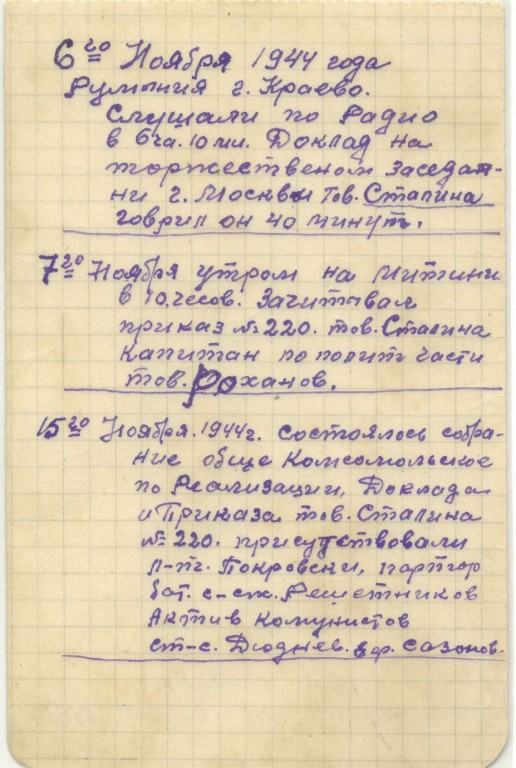 6го Ноября 1944 года
Румыния г. Краево.
Слушали по Радио
в 6 ча. 10 ми. Доклад на
торжественом заседан-
ни г. Москвы Тов. Сталина
говрил он 40 минут.
7го Ноября утром на Митинги
в 10. чесов. Зачитывал
приказ № 220. тов. Сталина
Капитан по полит части
тов. Роханов.
15го Ноября. 1944 г. состоялось собра-
ние обще Комсомольское
по Реализации, Доклада
и Приказа тов. Сталина
№ 220. присутствовали
Л-т. Покровски, парторг
бат. с-сж. Решетников
Актив комунистов
ст-с. Дюднев. еф. Сазонов.